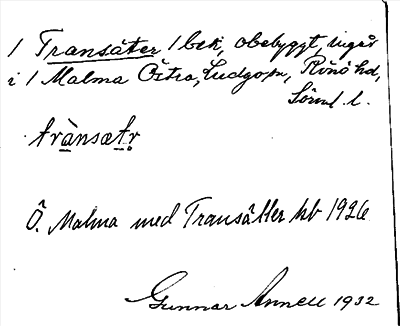 1 Transäter 1 bek, obebyggt, ingår
i 1 Malma Östra, Ludgo sn, Rönö hd,
Sörml. l.
trànsætr
Ö. Malma med Transätter kb 1926
Gunnar Annell 1932